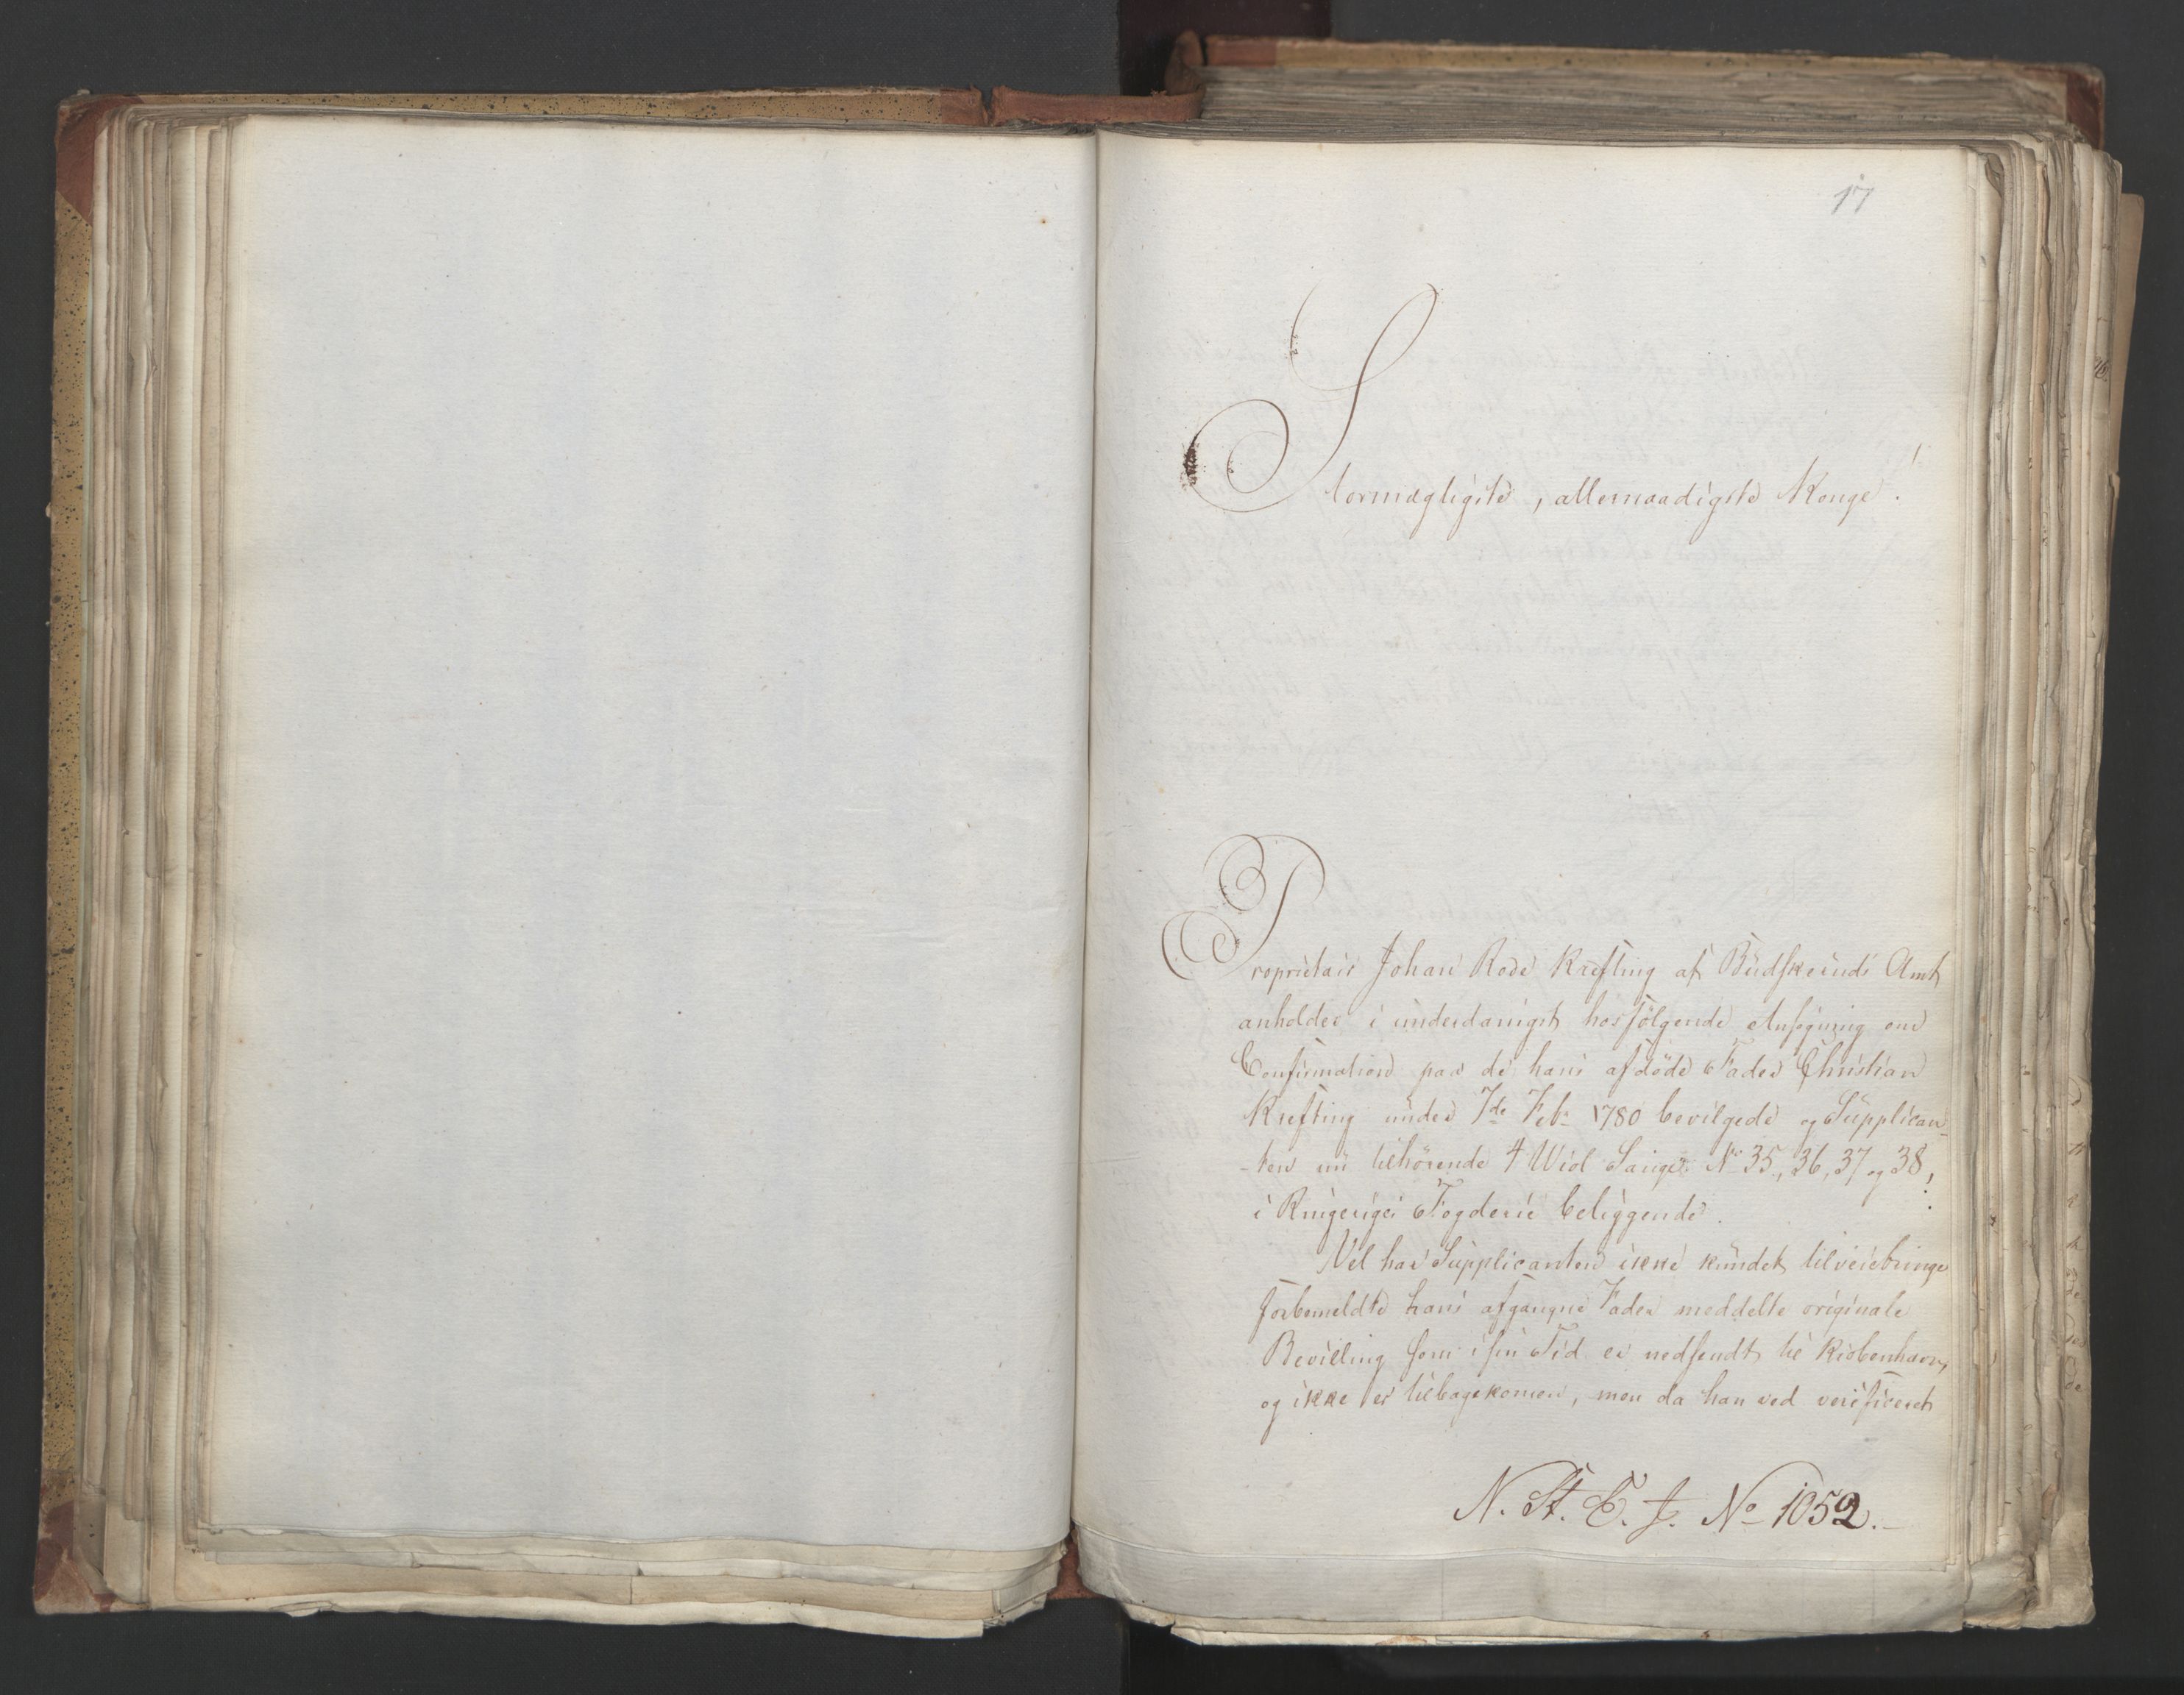 17
Stormægtigste, allernaadigste Konge!
Proprietair Johan Rode Kræfting af Budskeruds Amt
anholder i underdanigst hosfölgende Ansögning om
Confirmation paa de hans afdöde Fader Christian
Kræfting under 7de Feb. 1780 bevilgede og Supplican-
-ten nu tilhörende 4 Sauger No 35, 36, 37 og 38,
i Ringerigs Fogderie beliggende.
Vel har Supplicanten ikke kundet tilveiebringe
forbemeldte hans afgangne Fader meddelte originale
Bevilling som i sin Tid er nedsendt til Kiöbenhavn,
og ikke er tilbagekomen, men da han ved verificeret
N. St. C. J. No 1052.-